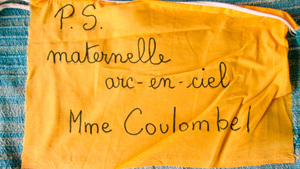 P.S.
maternelle
arc-en-ciel
Mme Coulombel